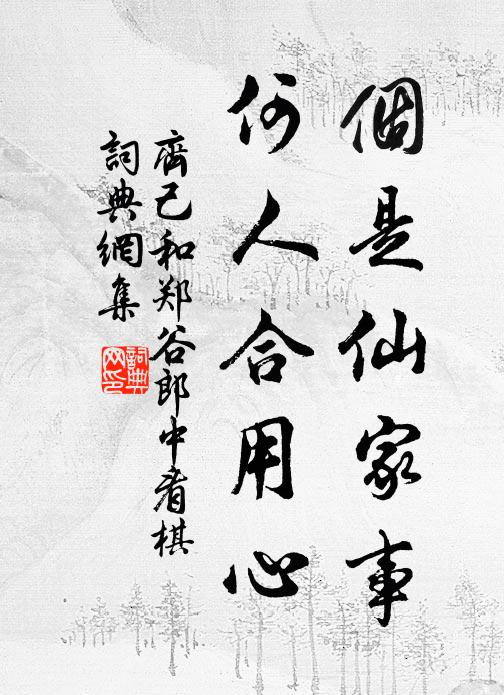 個是仙家事
何人合用心
齊己和郑谷郎中看棋
詞典網集
詞典网印